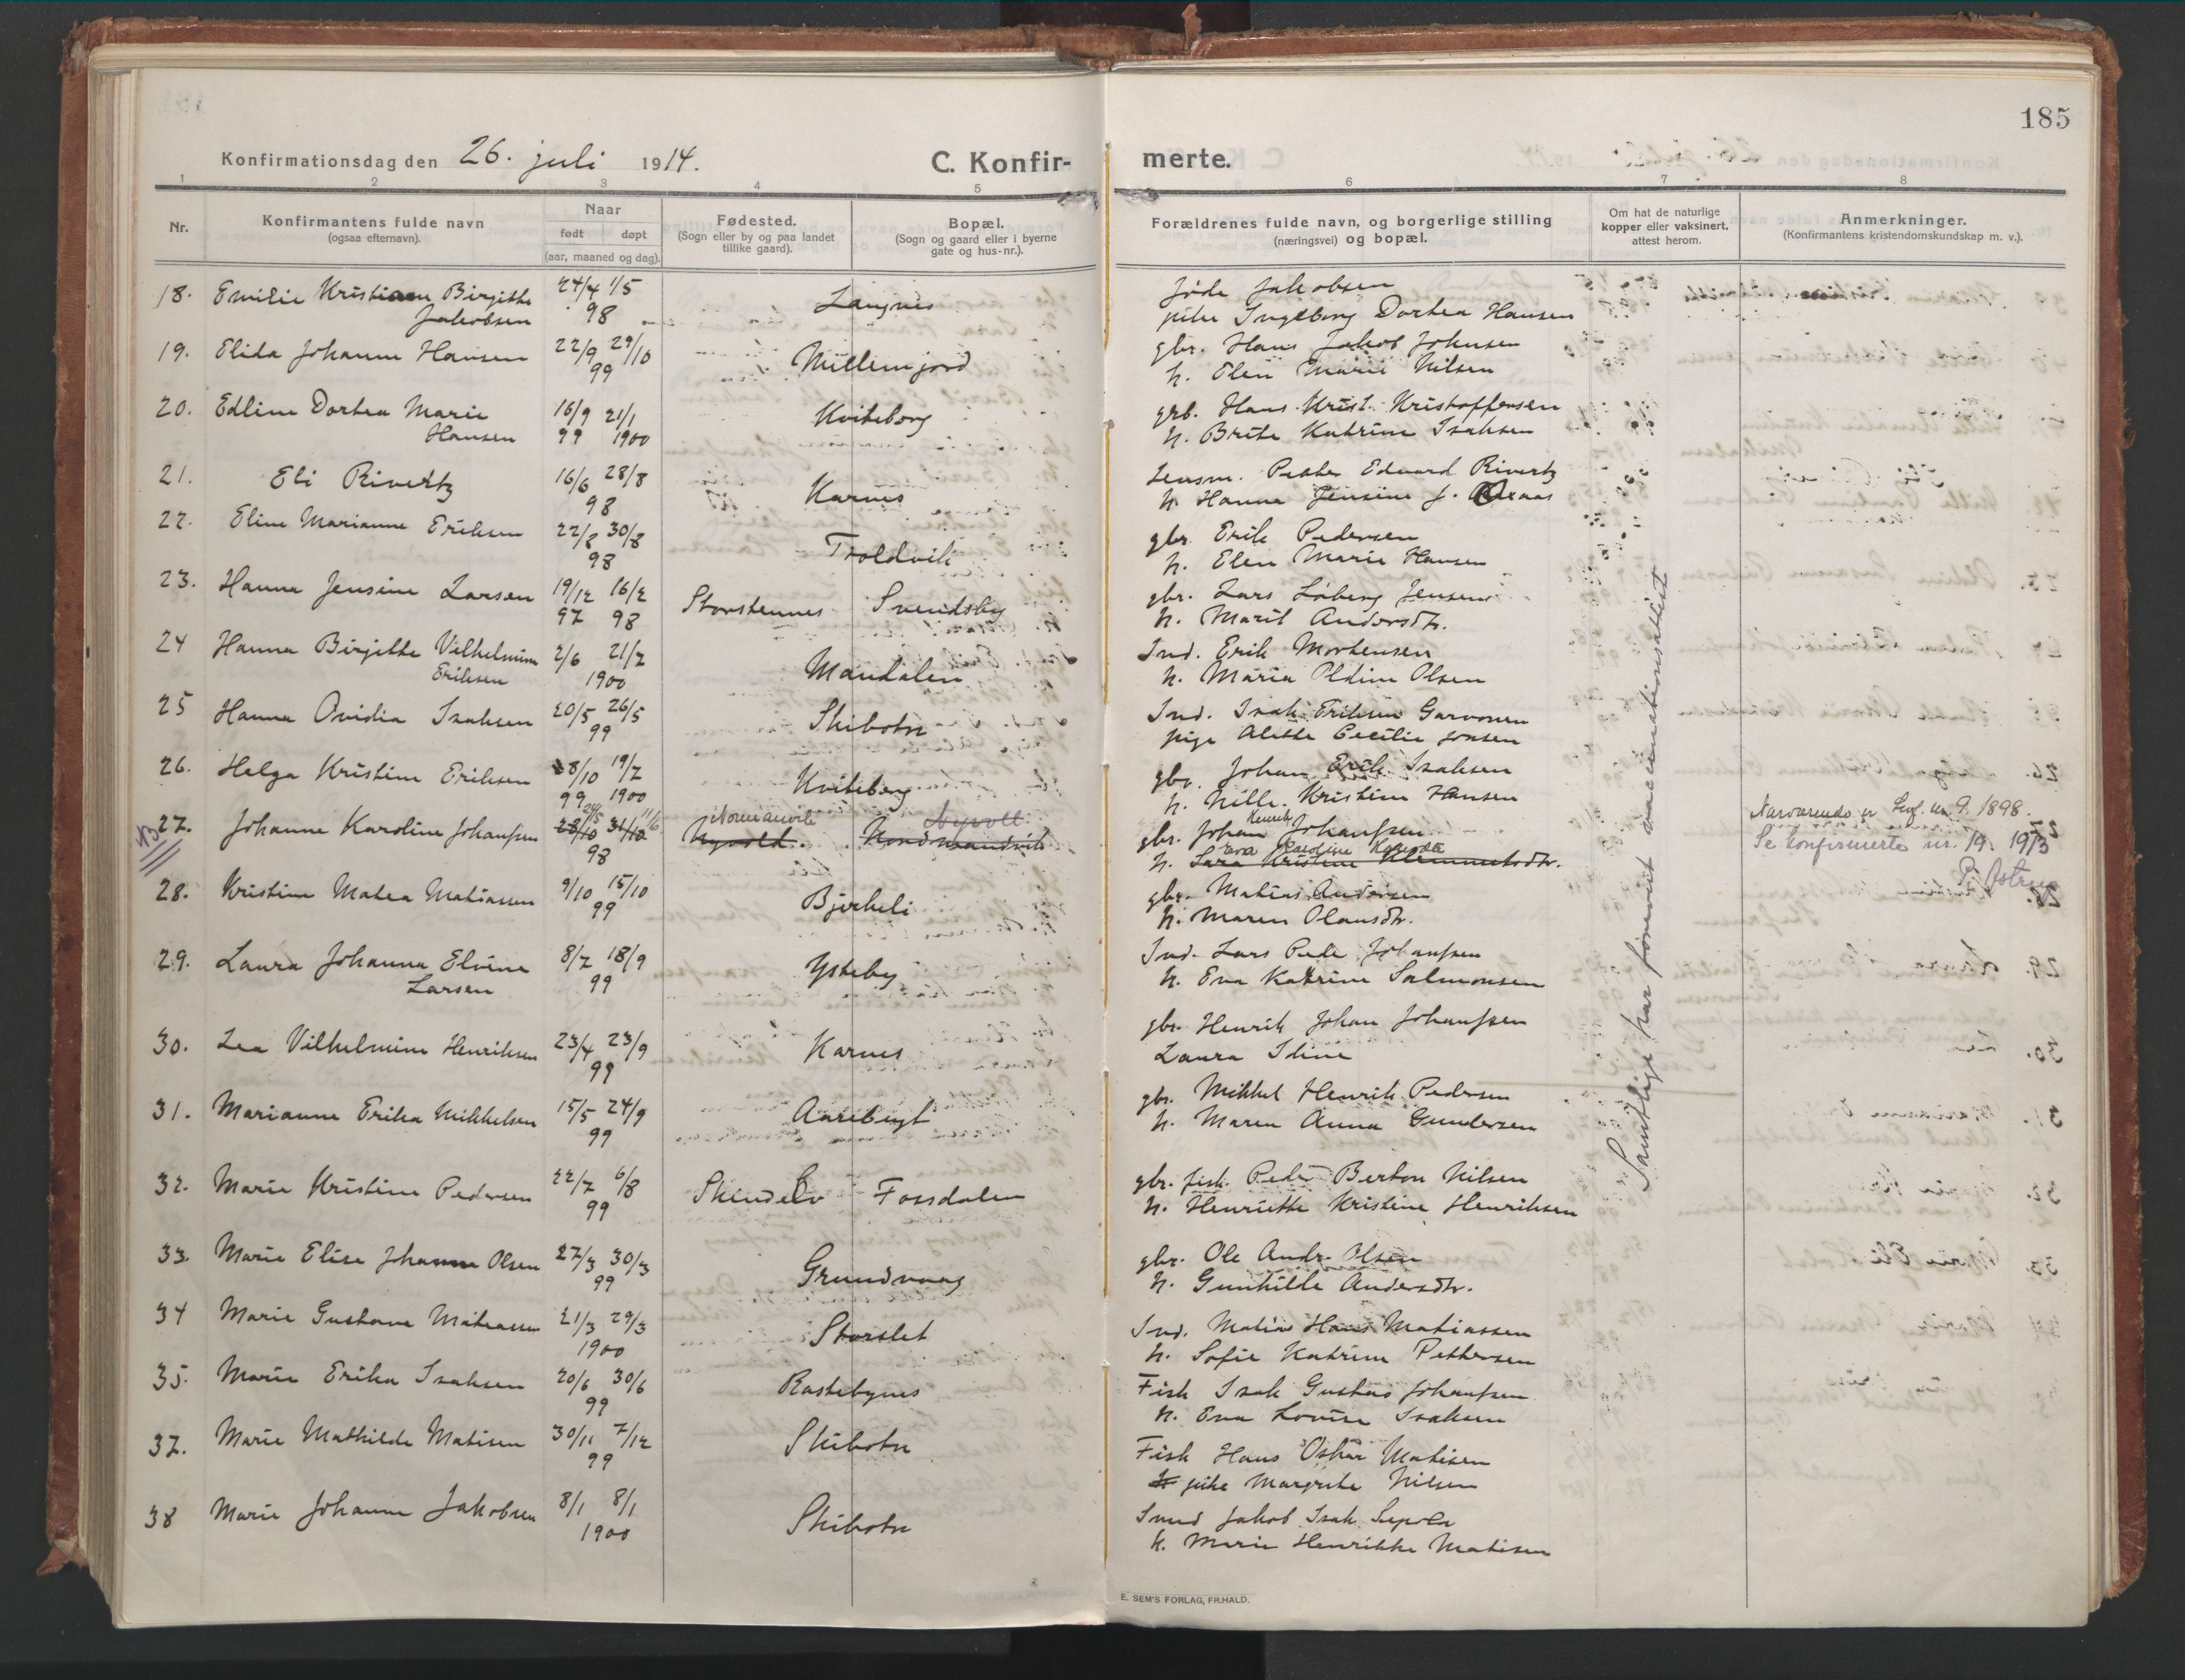 185
Konfirmationsdag den 26. juli 1914. C. Konfir- merte.
1 2 3 4 5 6 7 8
Nr.
Konfirmantens fulde navn
(ogsaa efternavn).
Naar
født døpt
(aar, maaned og dag).
Fødested.
(Sogn eller by og paa landet
tillike gaard).
Bopæl.
(Sogn og gaard eller i byerne
gate og hus-nr.).
Forældrenes fulde navn, og borgerlige stilling
(næringsvei) og bopæl.
Om hat de naturlige
kopper eller vaksinert,
attest herom.
Anmerkninger.
(Konfirmantens kristendomskundskap m. v.).
18. Emilie Kristiane Birgitte 24/4 1/5 Langnes Jøde Jakobsen
Jakobsen 98 pike Ingeborg Dortea Hansen
19. Elida Johanne Hansen 22/9 29/10 Millemjord gbr. Hans Jakob Johnsen
99 h. Elen Marie Nilsen
20. Edline Dortea Marie 16/9 21/1 Kviteborg grb. Hans Krist. Kristoffersen
Hansen 99 1900 h. Brite Katrine Isaksen
21. Eli Rivertz 16/6 28/8 Karnes Lensm. Peder Edvard Rivertz
98 h. Hanna Jensine J.
22. Eline Marianne Eriksen 22/8 30/8 Troldvik gbr. Erik Pedersen
98 h. Elen Marie Hansen
23. Hanna Jensine Larsen 19/12 16/2 Storstennes Svendsby gbr. Lars Løberg Jensen
97 98 h. Marit Andersdtr.
24 Hanna Birgitte Vilhelmine 2/6 21/7 Mandalen Ind. Erik Mortensen
Eriksen 1900 h. Maria Oldine Olsen
25 Hanna Ovidia Isaksen 20/5 26/5 Skibotn Ind. Isak Eriksen Garvonen
99 pige Alette Cecilie Jonsen
26. Helga Kristine Eriksen 8/10 19/7 Kviteberg gbr. Johan Erik Isaksen
99 1900 h. Nille Kristine Hansen
13
27. Johanne Karoline Johanssen 28/10 31/12 24/5 11/6 Nyvold. Nordmandvik Nyvoll. gbr. Johan Henrik Johanssen
98 h. Sara Kristine Klemmetsdtr. Eva Karoline
Nærværende er Lev. nr. 9. 1898.
Se konfirmerte nr. 19. 1913
28. Kristine Matea Matiassen 9/10 15/10 Bjerkeli gbr. Matias Andersen
99 h. Maren Olausdtr.
29. Laura Johanna Elvine 8/7 18/9 Ysteby Ind. Lars Peder Johanssen
Larsen 99 h. Eva Katrine Salmonsen
30. Lea Vilhelmine Henriksen 23/4 23/9 Karnes gbr. Henrik Johan Johanssen
99 Laura Iline
31. Marianne Erika Mikkelsen 15/5 24/9 Aarebugt gbr. Mikkel Henrik Pedersen
99 h. Maren Anna Gundersen
32. Marie Kristine Pedersen 22/7 6/8 Skindelv Fossdalen gbr. fisk. Peder Berton Nilsen
99 h. Henriette Kristine Henriksen
33. Marie Elise Johanne Olsen 27/3 30/3 Grundvaag gbr. Ole Andr. Olsen
99 h. Gunhilde Andersdtr.
34 Marie Gustava Matiassen 21/3 29/3 Storslet Ind. Matias Hans Matiassen
1900 h. Sofie Katrine Pettersen
35. Marie Erika Isaksen 20/6 30/6 Rastebynes Fisk Isak Gustav Johanssen
99 h. Eva Lovise Isaksen
37. Marie Mathilde Matisen 30/11 7/12 Skibotn Fisk Hans Oskar Matisen
99 pike Margrete Nilsen
38 Marie Johanne Jakobsen 8/1 8/1 Skibotn Jakob Isak
1900 h. Marie Henrikke Matisen
Samtlige har forevist vaccinationsattest
E. SEM'S FORLAG, FR.HALD.